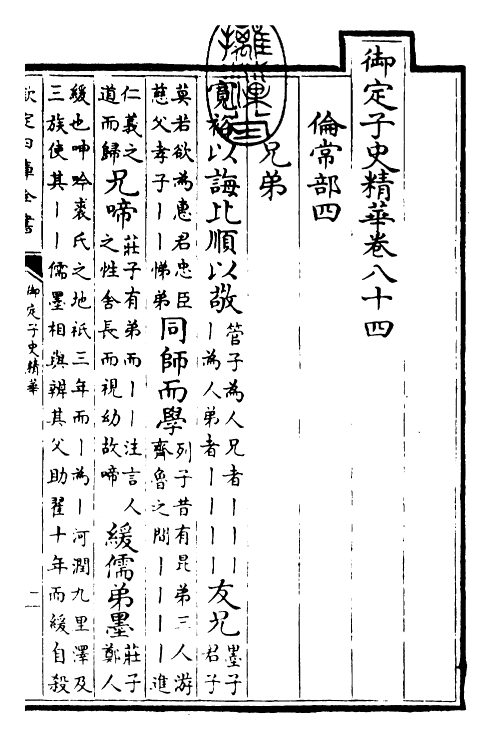 御定子史精華卷八十四
倫常部四
兄弟
寛裕以誨比順以敬
管子為人兄者丨丨丨
丨為人弟者丨丨丨丨
友兄
墨子
君子
莫若欲為惠君忠臣
慈父孝子丨丨悌弟
同師而學
列子昔有昆弟三人游
齊魯之間丨丨丨丨進
仁義之
道而歸
兄啼
莊子有弟而丨丨注言人
之性舍長而視幼故啼
緩儒弟墨
莊子
鄭人
緩也呻吟裘氏之地祇三年而丨為丨河潤九里澤及
三族使其丨丨儒墨相與辯其父助翟十年而緩自殺
欽定四庫全書
御定子史精華